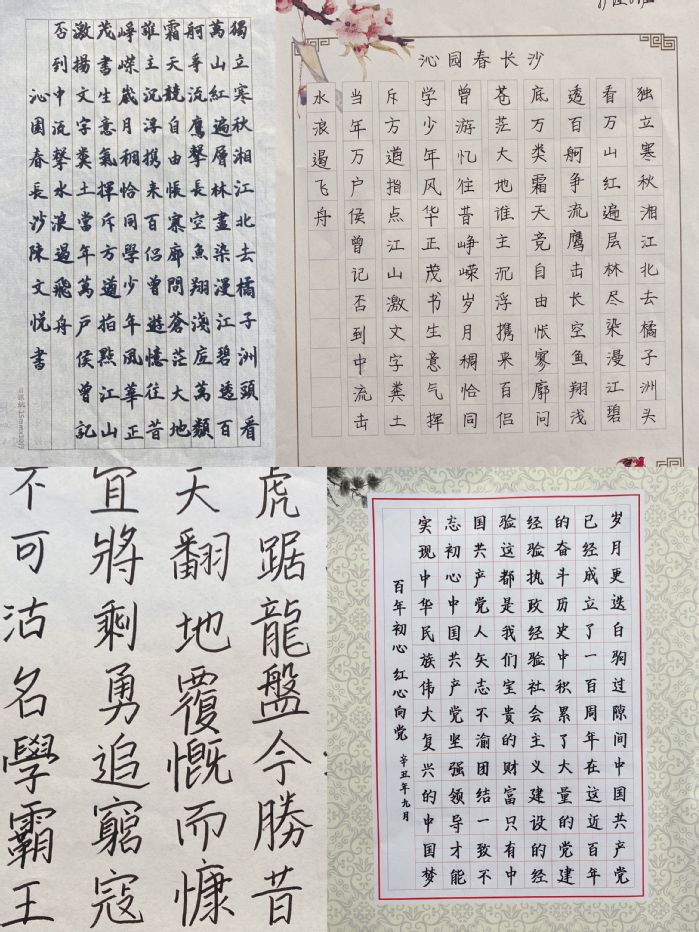 獨立寒秋湘江北去橘子洲頭看
萬山紅遍層林盡染漫江碧透百
舸爭流鷹擊長空魚翔淺底萬類
霜天競自由悵寥廓問蒼茫大地
誰主沉浮携来百侣曾遊憶往昔
崢嶸歲月稠恰同學少年風華正
茂書生意氣揮斥方遒指點江山
激揚文字糞土當年萬戶侯曾記
否到中流擊水浪遏飛舟
沁園春長沙陳文悅書
沁园春长沙
独立寒秋湘江北去橘子洲头
看万山红遍层林尽染漫江碧
透百舸争流鹰击长空鱼翔浅
底万类霜天竞自由怅寥廓问
苍茫大地谁主沉浮携来百侣
曾游忆往昔峥嵘岁月稠恰同
学少年风华正茂书生意气挥
斥方遒指点江山激文字粪土
当年万户侯曾记否到中流击
水浪遏飞舟
虎踞龍盤今勝昔
天翻地覆慨而慷
宜將剩勇追窮寇
不可沽名學霸王
岁月更迭白驹过隙间中国共产党
已经成立了一百周年在这近百年
的奋斗历史中积累了大量的党建
经验执政经验社会主义建设的经
验这都是我们宝贵的财富只有中
国共产党人矢志不渝团结一致不
忘初心中国共产党坚强领导才能
实现中华民族伟大复兴的中国梦
百年初心 红心向党 辛丑年九月